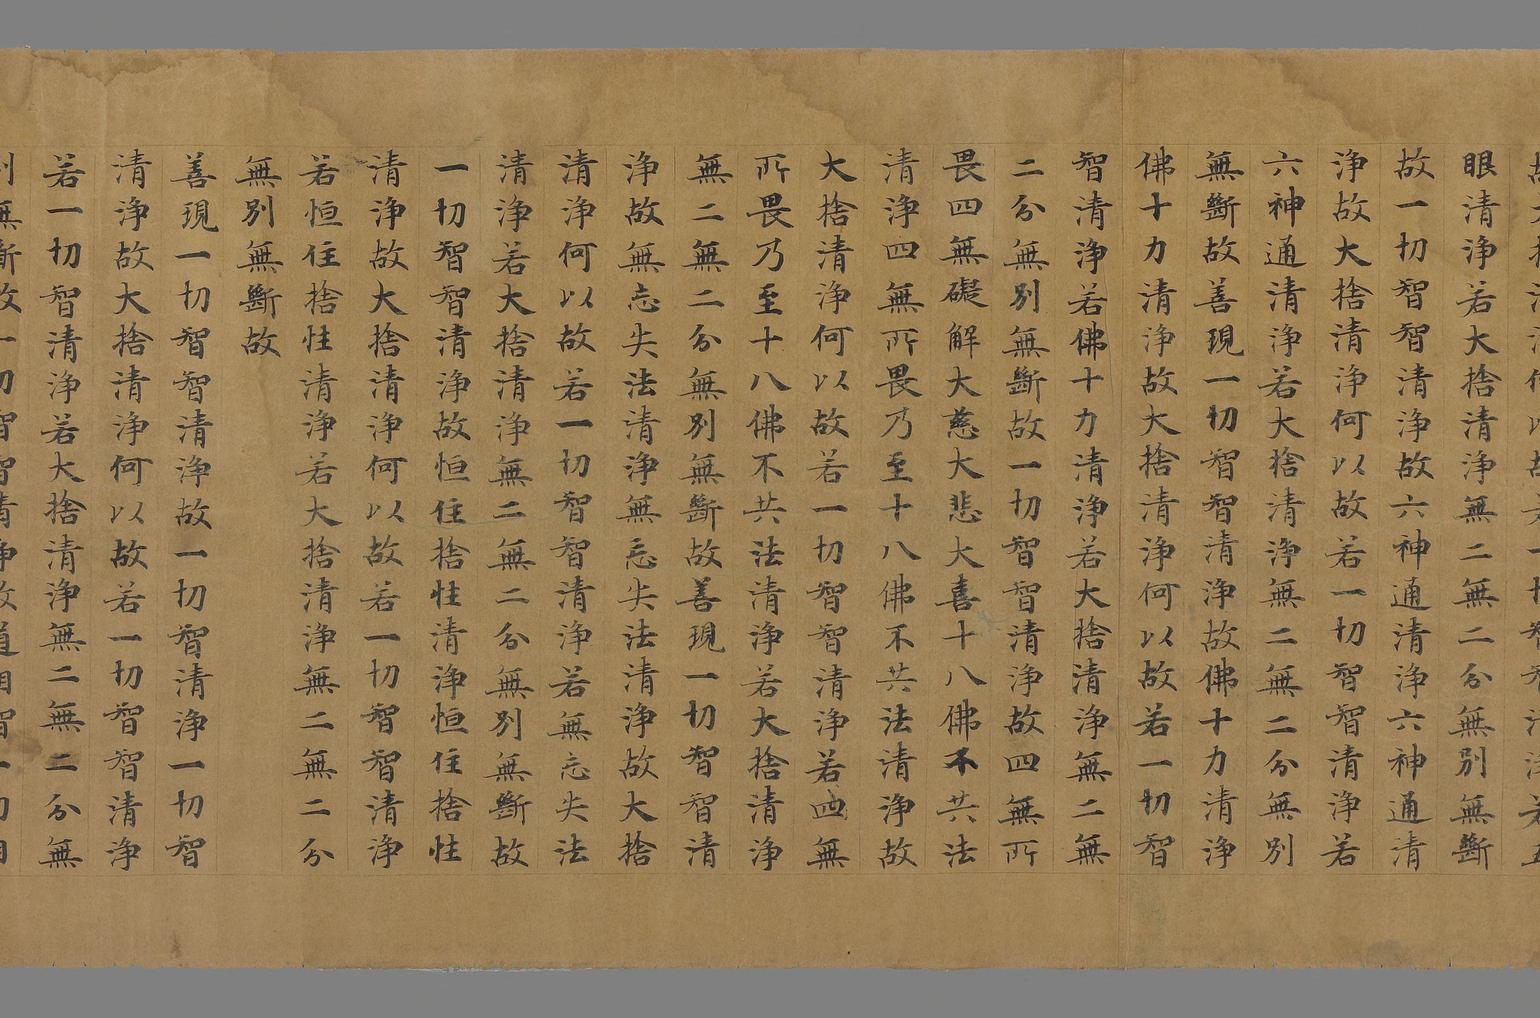 眼清淨若大捨清淨無二無二分無別無斷
故一切智智清淨故六神通清淨六神通清
淨故大捨清淨何以故若一切智智清淨若
六神通清淨若大捨清淨無二無二分無別
無斷故善現一切智智清淨故佛十力清淨
佛十力清淨故大捨清淨何以故若一切智
智清淨若佛十力清淨若大捨清淨無二無
二分無別無斷故一切智智清淨故四無所
畏四無礙解大慈大悲大喜十八佛不共法
清淨四無所畏乃至十八佛不共法清淨故
大捨清淨何以故若一切智智清淨若四無
所畏乃至十八佛不共法清淨若大捨清淨
無二無二分無別無斷故善現一切智智清
淨故無忘失法清淨無忘失法清淨故大捨
清淨何以故若一切智智清淨若無忘失法
清淨若大捨清淨無二無二分無別無斷故
一切智智清淨故恒住捨性清淨恒住捨性
清淨故大捨清淨何以故若一切智智清淨
若恒住捨性清淨若大捨清淨無二無二分
無別無斷故
善現一切智智清淨故一切智清淨一切智
清淨故大捨清淨何以故若一切智智清淨
若一切智清淨若大捨清淨無二無二分無
別無斷故一切智智清淨故道相智一切相